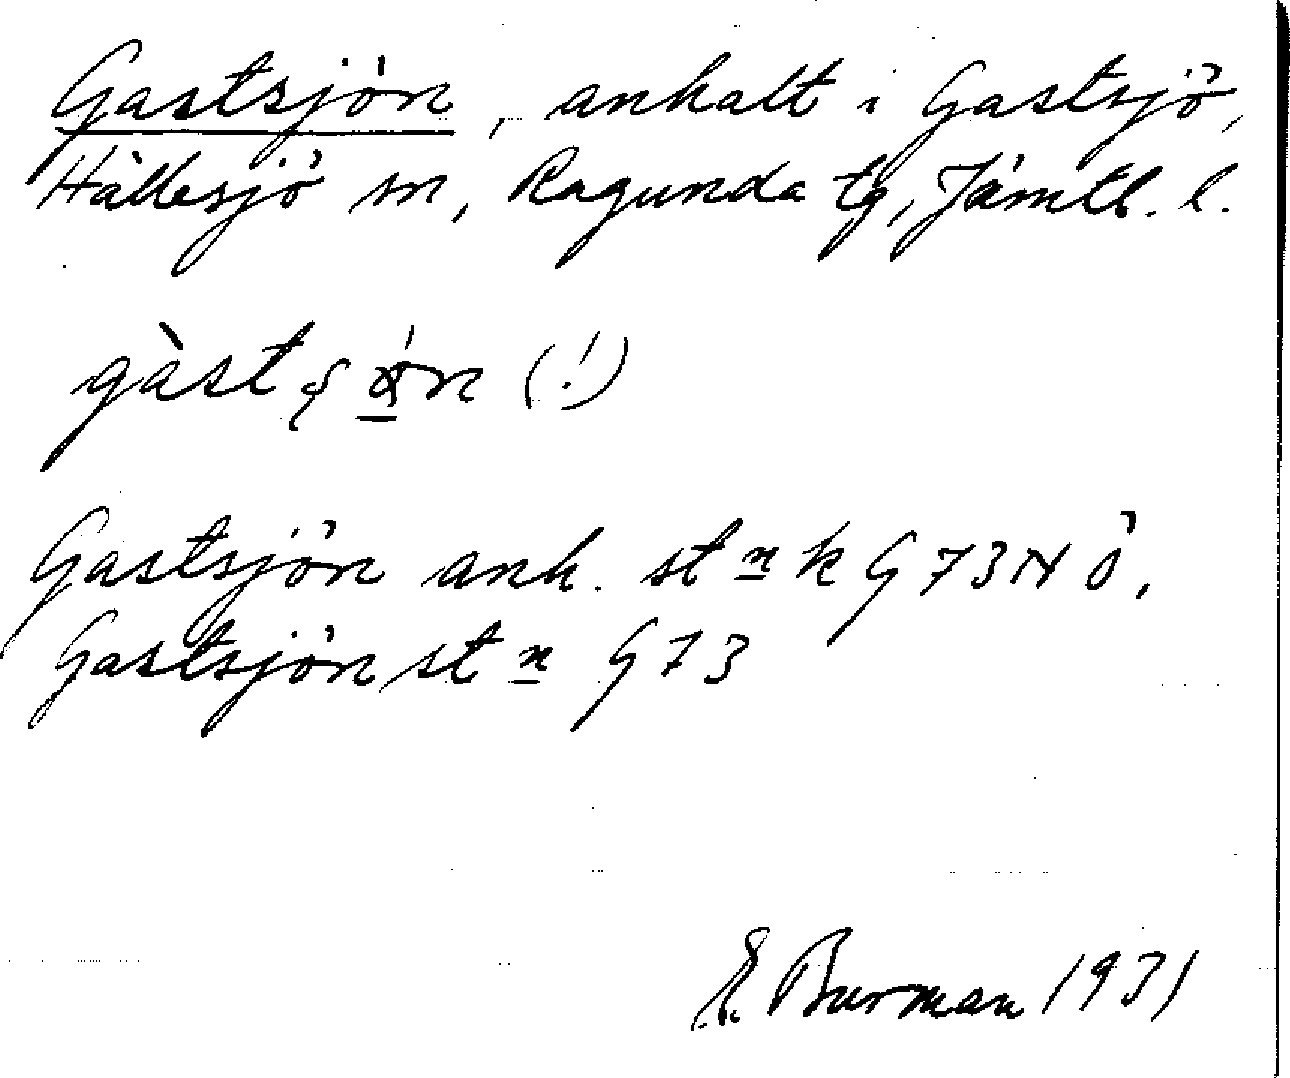 Gastsjön, anhalt i Gastsjö,
Hällesjö sn, Ragunda tg, Jämtl. l.
(!)
Gastsjön anh. st n k G 73 N Ö,
Gastsjön st n G 73
E. Burman 1931